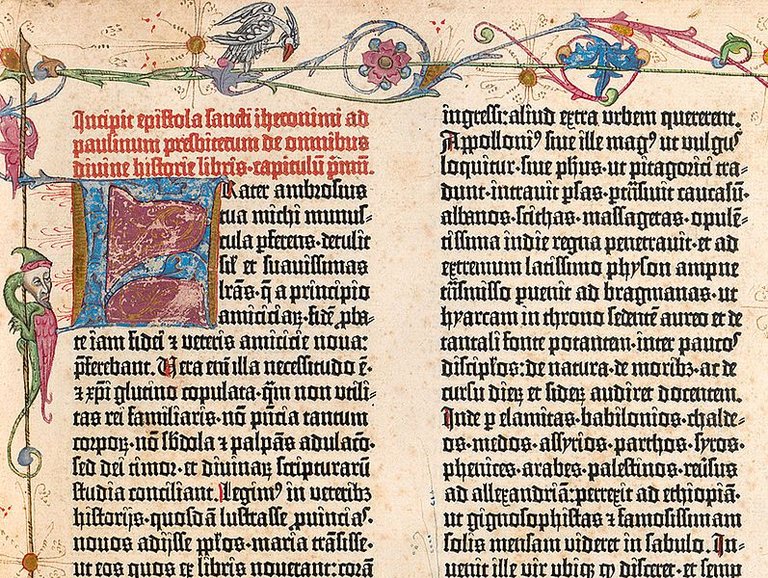 Incipit epistola sancti iheronimi ad
paulinum presbiterum de omnibus
divine historie libris·capitulū pⁱmū.
FRater ambrosius
tua michi munus-
cula p̄ferens·detulit
sil̄ et suavissimas
lr̄as·q̄ a principio
amiciciaꝝ·fidē ꝓba-
te iam fidei ⁊ veteris amicicie nova:
p̄ferebant. Vera em̄ illa necessitudo ē·
⁊ xp̄i glutino copulata·qͣm non utili-
tas rei familiaris·nō p̄ncia tantum
corpoꝝ·nō sb̓dola ⁊ palpās adulacō·
sed dei timor·et divinaꝝ scripturarū
studia conciliant. Legimꝰ in veteribꝫ
historijs·quosdā lustrasse ꝓvinciaˢ·
novos adijsse pp̄los·maria trāsisse·
ut eos quos ex libris noverant:corā
ingressi:aliud extra urbem quererent.
Appolloniꝰ sive ille magꝰ ut vulgꝰ
loquitur·sive ph̄us·ut pitagorici tra-
dunt·intravit ꝑsas·ꝑtⁿsivit caucasū·
albanos·scithas·massagetas·opulē-
tissima indie regna penetravit·et ad
extremum latissimo physon ampne
tⁿsmisso ꝑvenit ad bragmanas·ut
hyarcam in throno sedentē aureo et de
tantali fonte potantem·inter paucoˢ
discip̄los:de natura·de moribꝫ·ac de
cursu dieꝝ et sideꝝ audiret docentem.
Inde ꝑ elamitas·babilonios·chalde-
os·medos·assyrios·parthos·syros·
phenices·arabes·palestinos·revˢus
ad allexandriā:perrexit ad ethiopiā·
ut gignosophistas ⁊ famosissimam
solis mensam videret in sabulo. In-
venit ille vir ubiqꝫ qͩ disceret·et semp